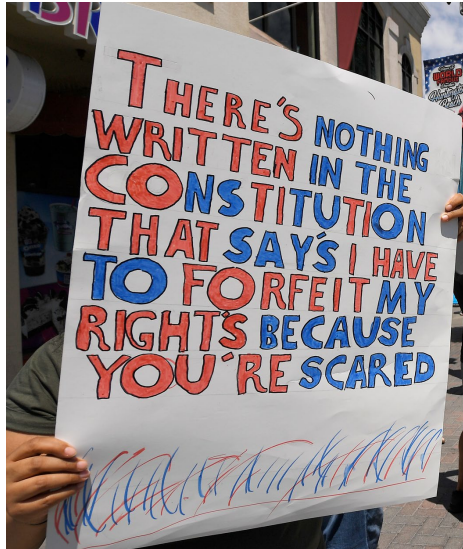 THERE'S NOTHING
WRITTEN IN THE
CONSTITUTION
THAT SAY'S I HAVE
TO FORFEIT MY
RIGHT'S BECAUSE
YOU'RE SCARED